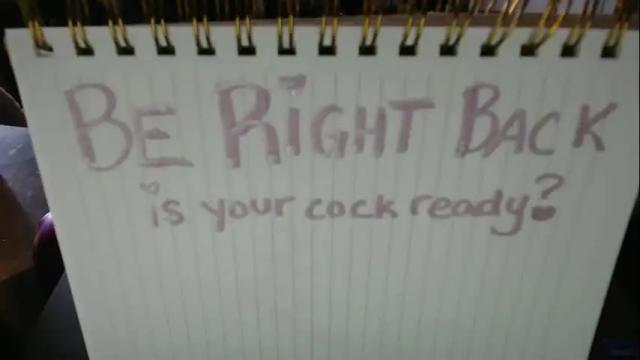 BE RIGHT BACK
is your cock ready?